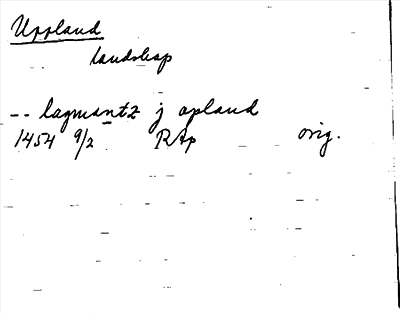 Uppland
landskap
-- lagmantz j opland
1454 9/2 RAp orig.